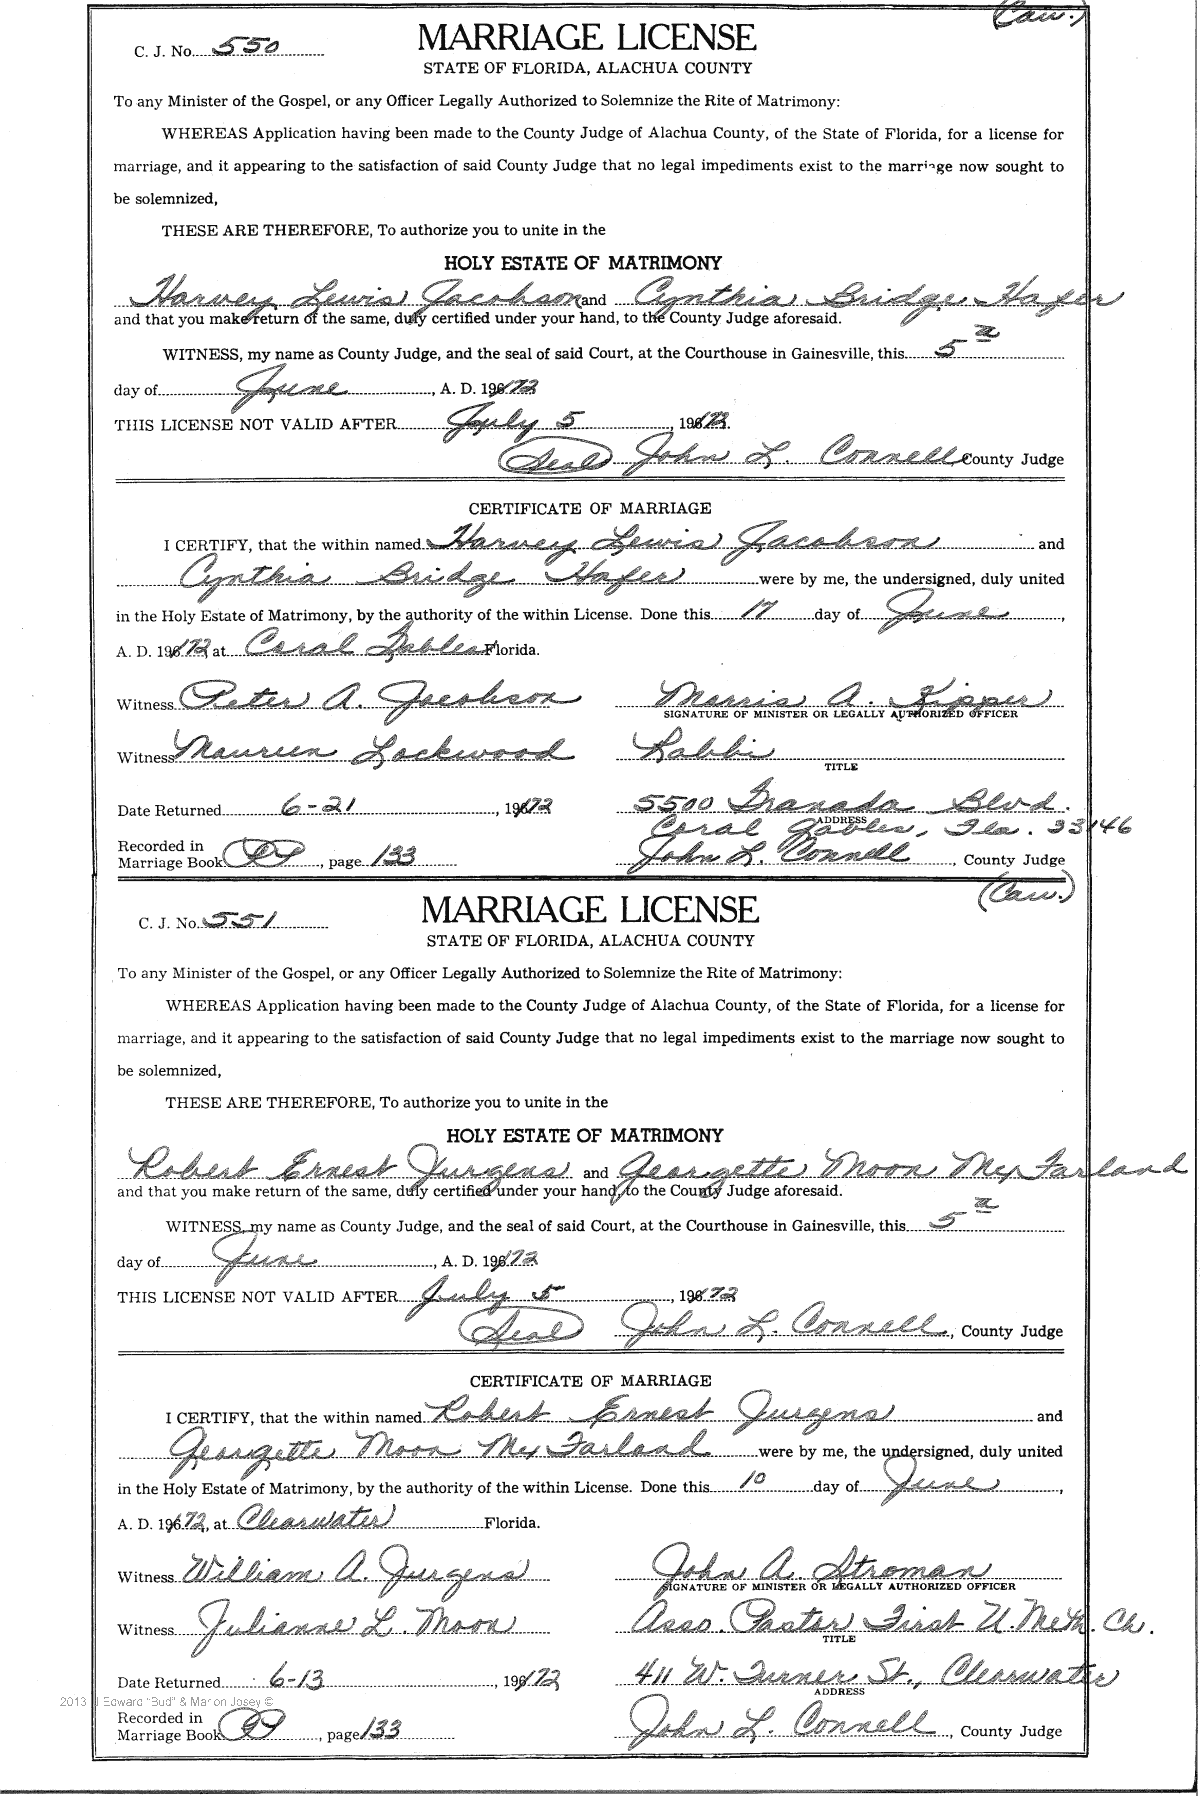 (Cau.)
C. J. No. 550 MARRIAGE LICENSE
STATE OF FLORIDA, ALACHUA COUNTY
To any Minister of the Gospel, or any Officer Legally Authorized to Solemnize the Rite of Matrimony:
WHEREAS Application having been made to the County Judge of Alachua County, of the State of Florida, for a license for
marriage, and it appearing to the satisfaction of said County Judge that no legal impediments exist to the marriage now sought to
be solemnized,
THESE ARE THEREFORE, To authorize you to unite in the
HOLY ESTATE OF MATRIMONY
Harvey Lewis Jacobson and Cynthia Bridge Hafer
and that you make return of the same, duly certified under your hand, to the County Judge aforesaid.
WITNESS, my name as County Judge, and the seal of said Court, at the Courthouse in Gainesville, this 5th
day of June, A. D. 1972
THIS LICENSE NOT VALID AFTER July 5, 1972.
(Seal) John L. Connell County Judge
CERTIFICATE OF MARRIAGE
I CERTIFY, that the within named Harvey Lewis Jacobson and
Cynthia Bridge Hafer were by me, the undersigned, duly united
in the Holy Estate of Matrimony, by the authority of the within License. Done this 17 day of June,
A. D. 1972, at Coral Gables Florida.
Witness Peter A. Jacobson Morris A. Kipper
SIGNATURE OF MINISTER OR LEGALLY AUTHORIZED OFFICER
Witness Maureen Lockwood Rabbi
TITLE
Date Returned 6-21, 1972 5500 Granada Blvd.
ADDRESS
Coral Gables, Fla. 33146
Recorded in
Marriage Book 99, page 133 John L. Connell, County Judge
(Cau.)
C. J. No. 551 MARRIAGE LICENSE
STATE OF FLORIDA, ALACHUA COUNTY
To any Minister of the Gospel, or any Officer Legally Authorized to Solemnize the Rite of Matrimony:
WHEREAS Application having been made to the County Judge of Alachua County, of the State of Florida, for a license for
marriage, and it appearing to the satisfaction of said County Judge that no legal impediments exist to the marriage now sought to
be solemnized,
THESE ARE THEREFORE, To authorize you to unite in the
HOLY ESTATE OF MATRIMONY
Robert Ernest Jurgens and Georgette Moon McFarland
and that you make return of the same, duly certified under your hand, to the County Judge aforesaid.
WITNESS, my name as County Judge, and the seal of said Court, at the Courthouse in Gainesville, this 5th
day of June, A. D. 1972
THIS LICENSE NOT VALID AFTER July 5, 1972
(Seal) John L. Connell, County Judge
CERTIFICATE OF MARRIAGE
I CERTIFY, that the within named Robert Ernest Jurgens and
Georgette Moon McFarland were by me, the undersigned, duly united
in the Holy Estate of Matrimony, by the authority of the within License. Done this 10 day of June,
A. D. 1972, at Clearwater Florida.
Witness William A. Jurgens John A. Stroman
SIGNATURE OF MINISTER OR LEGALLY AUTHORIZED OFFICER
Witness Julianne L. Moon Asso. Pastor First U. Meth. Ch.
TITLE
Date Returned 6-13, 1972 411 W. Turner St., Clearwater
ADDRESS
2013 Edward "Bud" & Marion Josey ©
Recorded in
Marriage Book 99, page 133 John L. Connell, County Judge